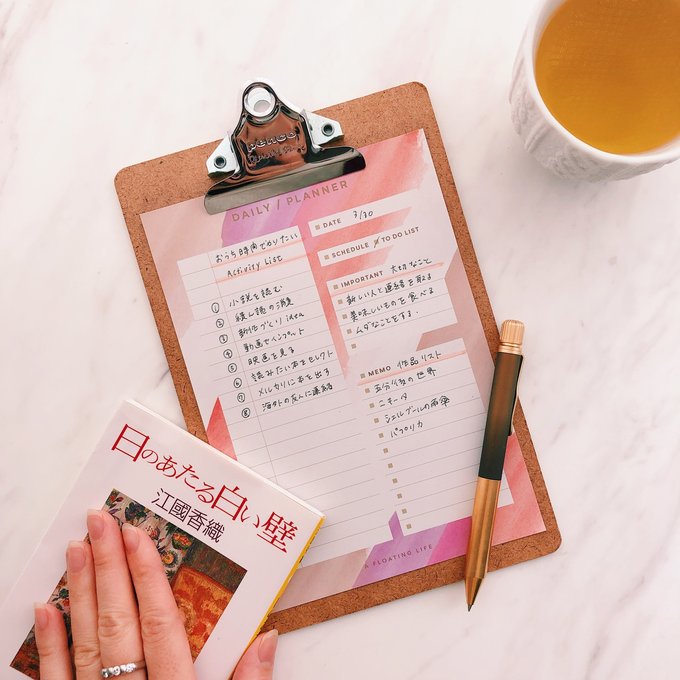 penco
DAILY / PLANNER
おうち時間でやりたい
Activity List
① 小説を読む
② 積ん読の消費
③ 新作づくり idea
④ 動画でインプット
⑤ 映画を見る
⑥ 読みたい本をセレクト
⑦ メルカリに本を出す
⑧ 海外の友人に連絡
DATE 3/30
SCHEDULE / TO DO LIST
IMPORTANT 大切なこと
新しい人と連絡を取る
美味しいものを食べる
ムダなことをする.
MEMO 作品リスト
五分後の世界
ニキータ
シェルブールの雨傘
パプリカ
A FLOATING LIFE
日のあたる白い壁
江國香織